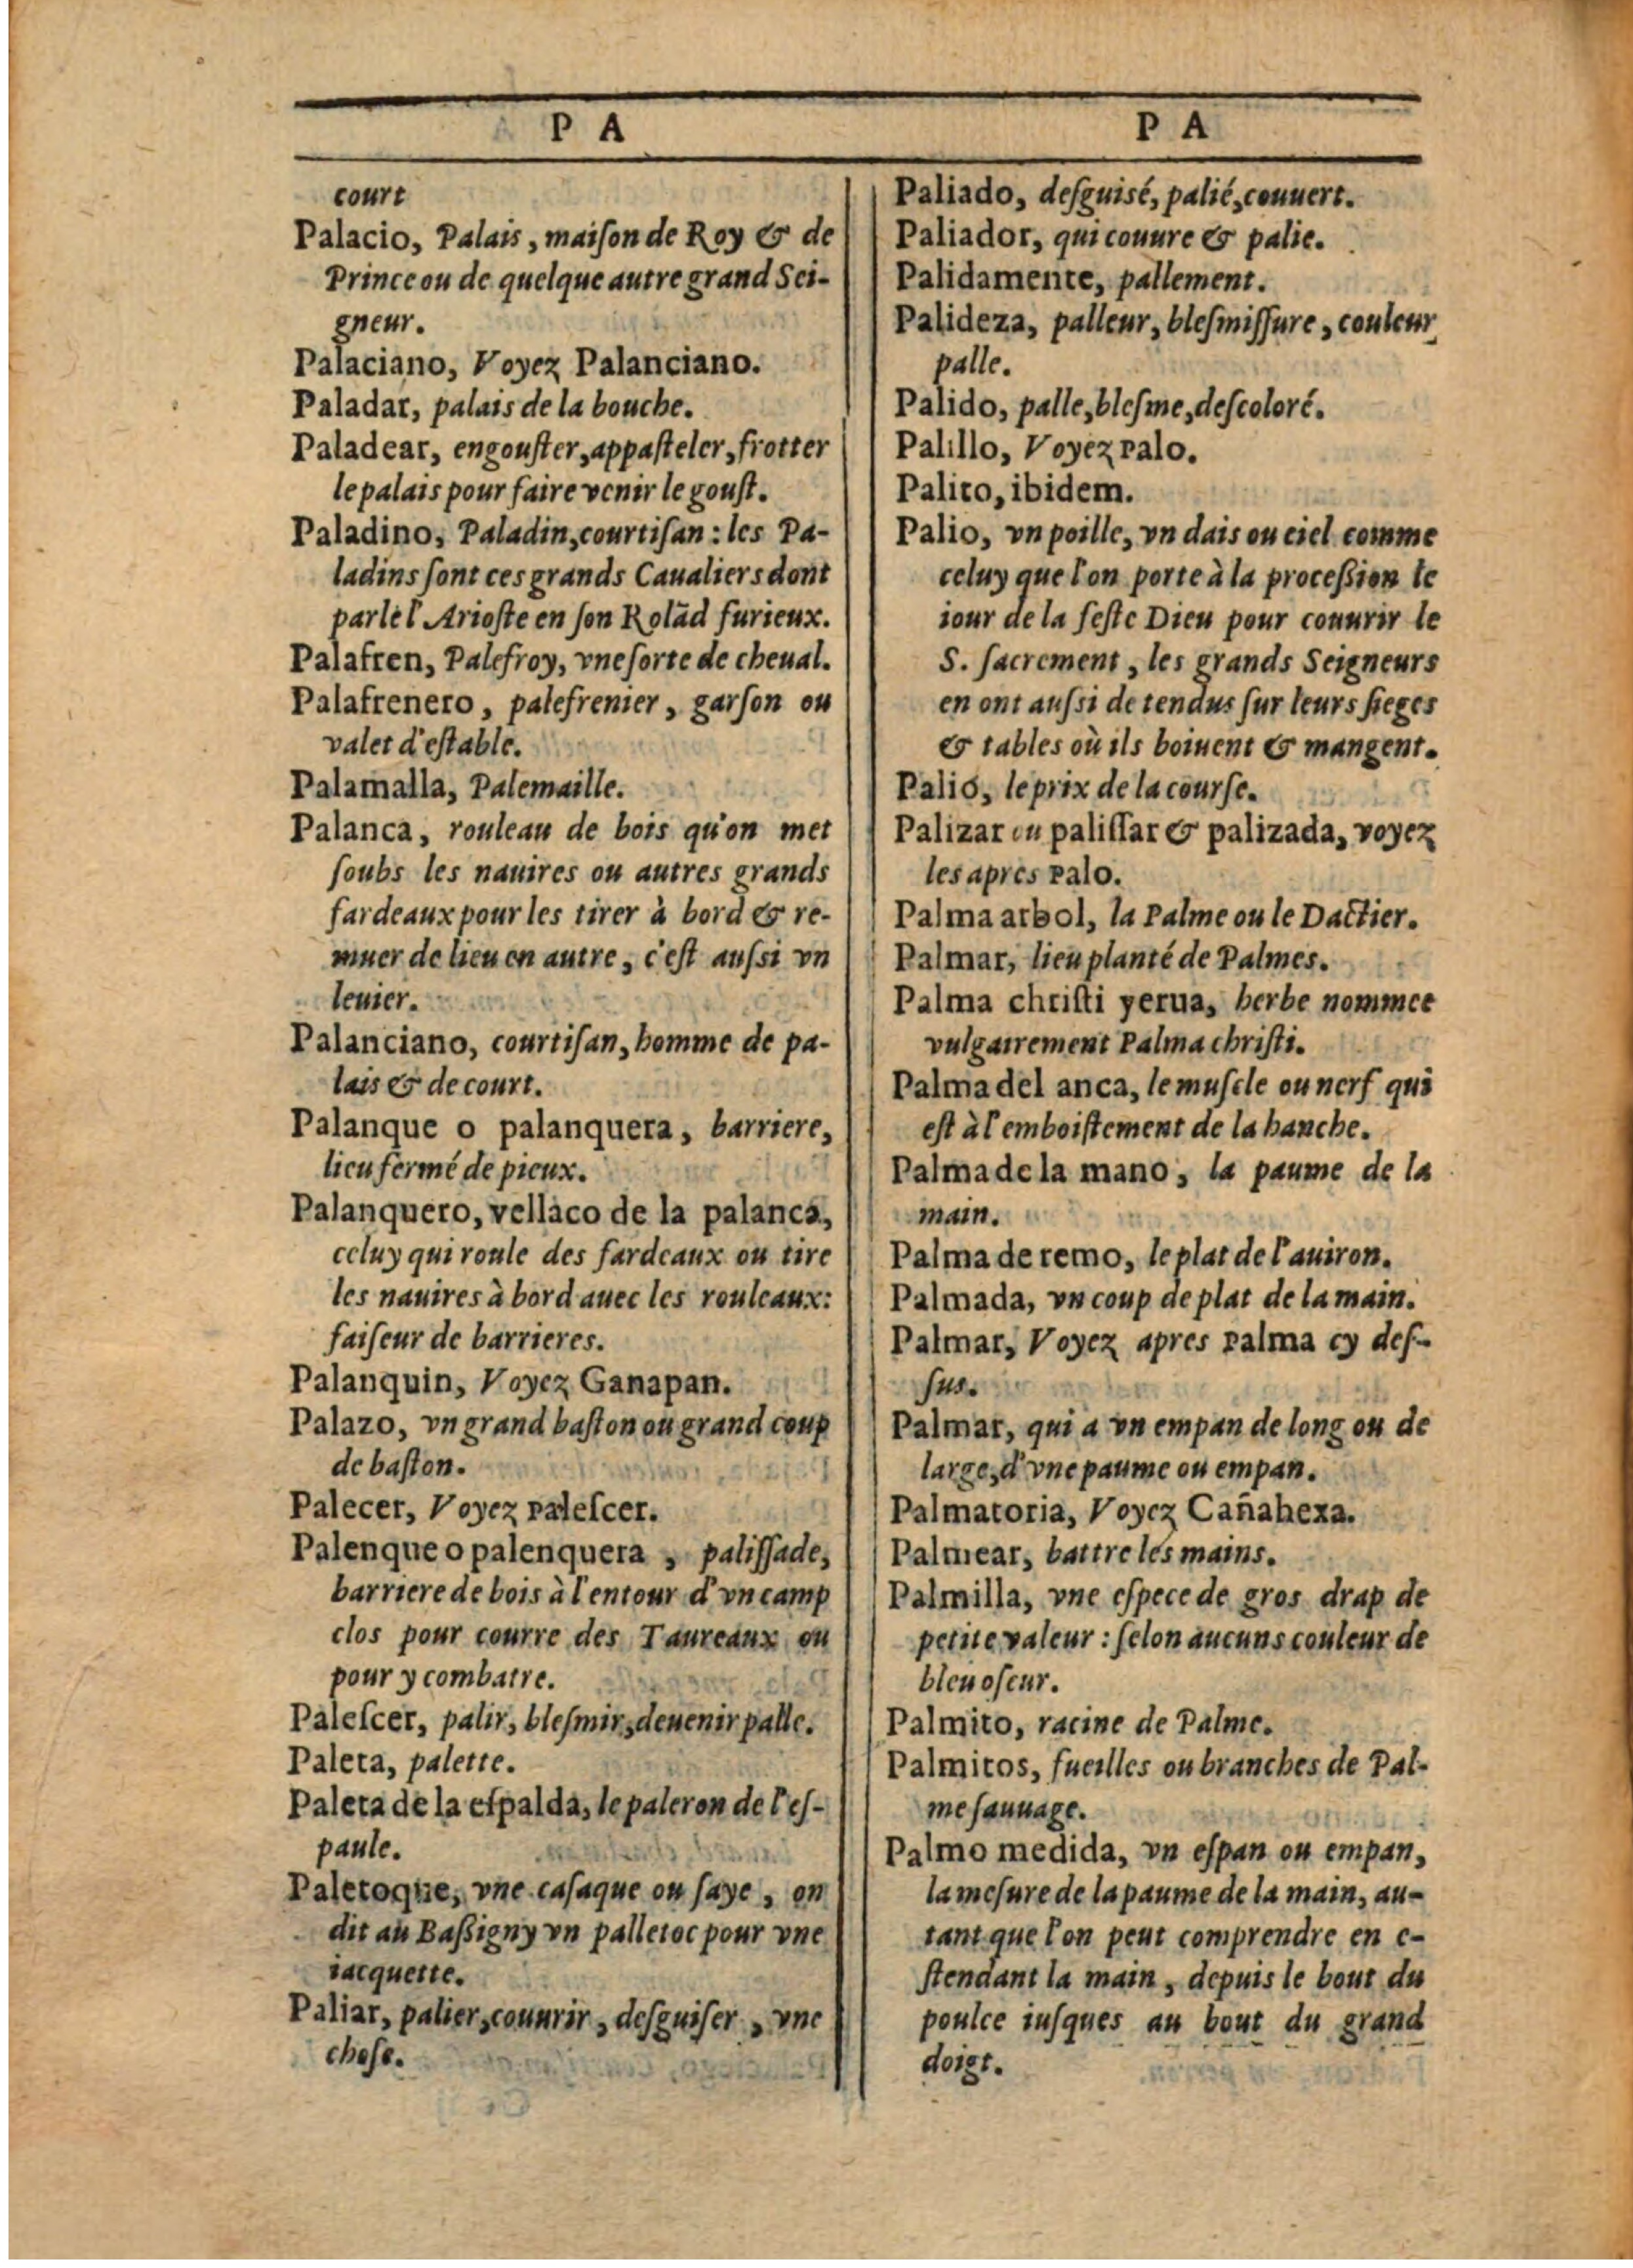 PA
PA
court
Palacio, Palais, maiſon de Roy & de
Prince ou de quelque autre grand Sei-
gneur.
Palaciano, Voyez Palanciano.
Paladar, palais de la bouche.
Paladear, engouſter, appaſteler, frotter
le palais pour faire venir le gouſt.
Paladino, Paladin, courtiſan: les Pa-
ladins ſont ces grands Caualiers dont
parle l'Arioſte en ſon Rolād furieux.
Palafren, Palefroy, vne ſorte de cheual.
Palafrenero, palefrenier, garſon ou
valet d'eſtable.
Palamalla, Palemaille.
Palanca, rouleau de bois qu'on met
ſoubs les nauires ou autres grands
fardeaux pour les tirer à bord & re-
muer de lieu en autre, c'eſt auſsi vn
leuier.
Palanciano, courtiſan, homme de pa-
lais & de court.
Palanque o palanquera, barriere,
lieu fermé de pieux.
Palanquero, vellaco de la palanca,
celuy qui roule des fardeaux ou tire
les nauires à bord auec les rouleaux:
faiſeur de barrieres.
Palanquin, Voyez Ganapan.
Palazo, vn grand baſton ou grand coup
de baſton.
Palecer, Voyez paleſcer.
Palenque o palenquera, paliſſade,
barriere de bois à l'entour d'vn camp
clos pour courre des Taureaux ou
pour y combatre.
Paleſcer, palir, bleſmir, deuenir palle.
Paleta, palette.
Paleta de la eſpalda, le paleron de l'eſ-
paule.
Paletoque, vne caſaque ou ſaye, on
dit au Baßigny vn palletoc pour vne
iacquette.
Paliar, palier, couurir, deſguiſer, vne
choſe.
Paliado, deſguisé, palié, couuert.
Paliador, qui couure & palie.
Palidamente, pallement.
Palideza, palleur, bleſmiſſure, couleur
palle.
Palido, palle, bleſme, deſcoloré.
Palillo, Voyez palo.
Palito, ibidem.
Palio, vn poille, vn dais ou ciel comme
celuy que l'on porte à la proceßion le
iour de la feſte Dieu pour couurir le
S. ſacrement, les grands Seigneurs
en ont auſsi de tendus ſur leurs ſieges
& tables où ils boiuent & mangent.
Palió, le prix de la courſe.
Palizar ou paliſſar & palizada, voyez
les apres palo.
Palma arbol, la Palme ou le Dactier.
Palmar, lieu planté de Palmes.
Palma chriſti yerua, herbe nommee
vulgairement Palma chriſti.
Palma del anca, le muſcle ou nerf qui
eſt à l'emboiſtement de la hanche.
Palma de la mano, la paume de la
main.
Palma de remo, le plat de l'auiron.
Palmada, vn coup de plat de la main.
Palmar, Voyez apres palma cy deſ-
ſus.
Palmar, qui a vn empan de long ou de
large, d'vne paume ou empan.
Palmatoria, Voyez Cañahexa.
Palmear, battre les mains.
Palmilla, vne eſpece de gros drap de
petite valeur: ſelon aucuns couleur de
bleu oſcur.
Palmito, racine de Palme.
Palmitos, fueilles ou branches de Pal-
me ſauuage.
Palmo medida, vn eſpan ou empan,
la meſure de la paume de la main, au-
tant que l'on peut comprendre en e-
ſtendant la main, depuis le bout du
poulce iuſques au bout du grand
doigt.